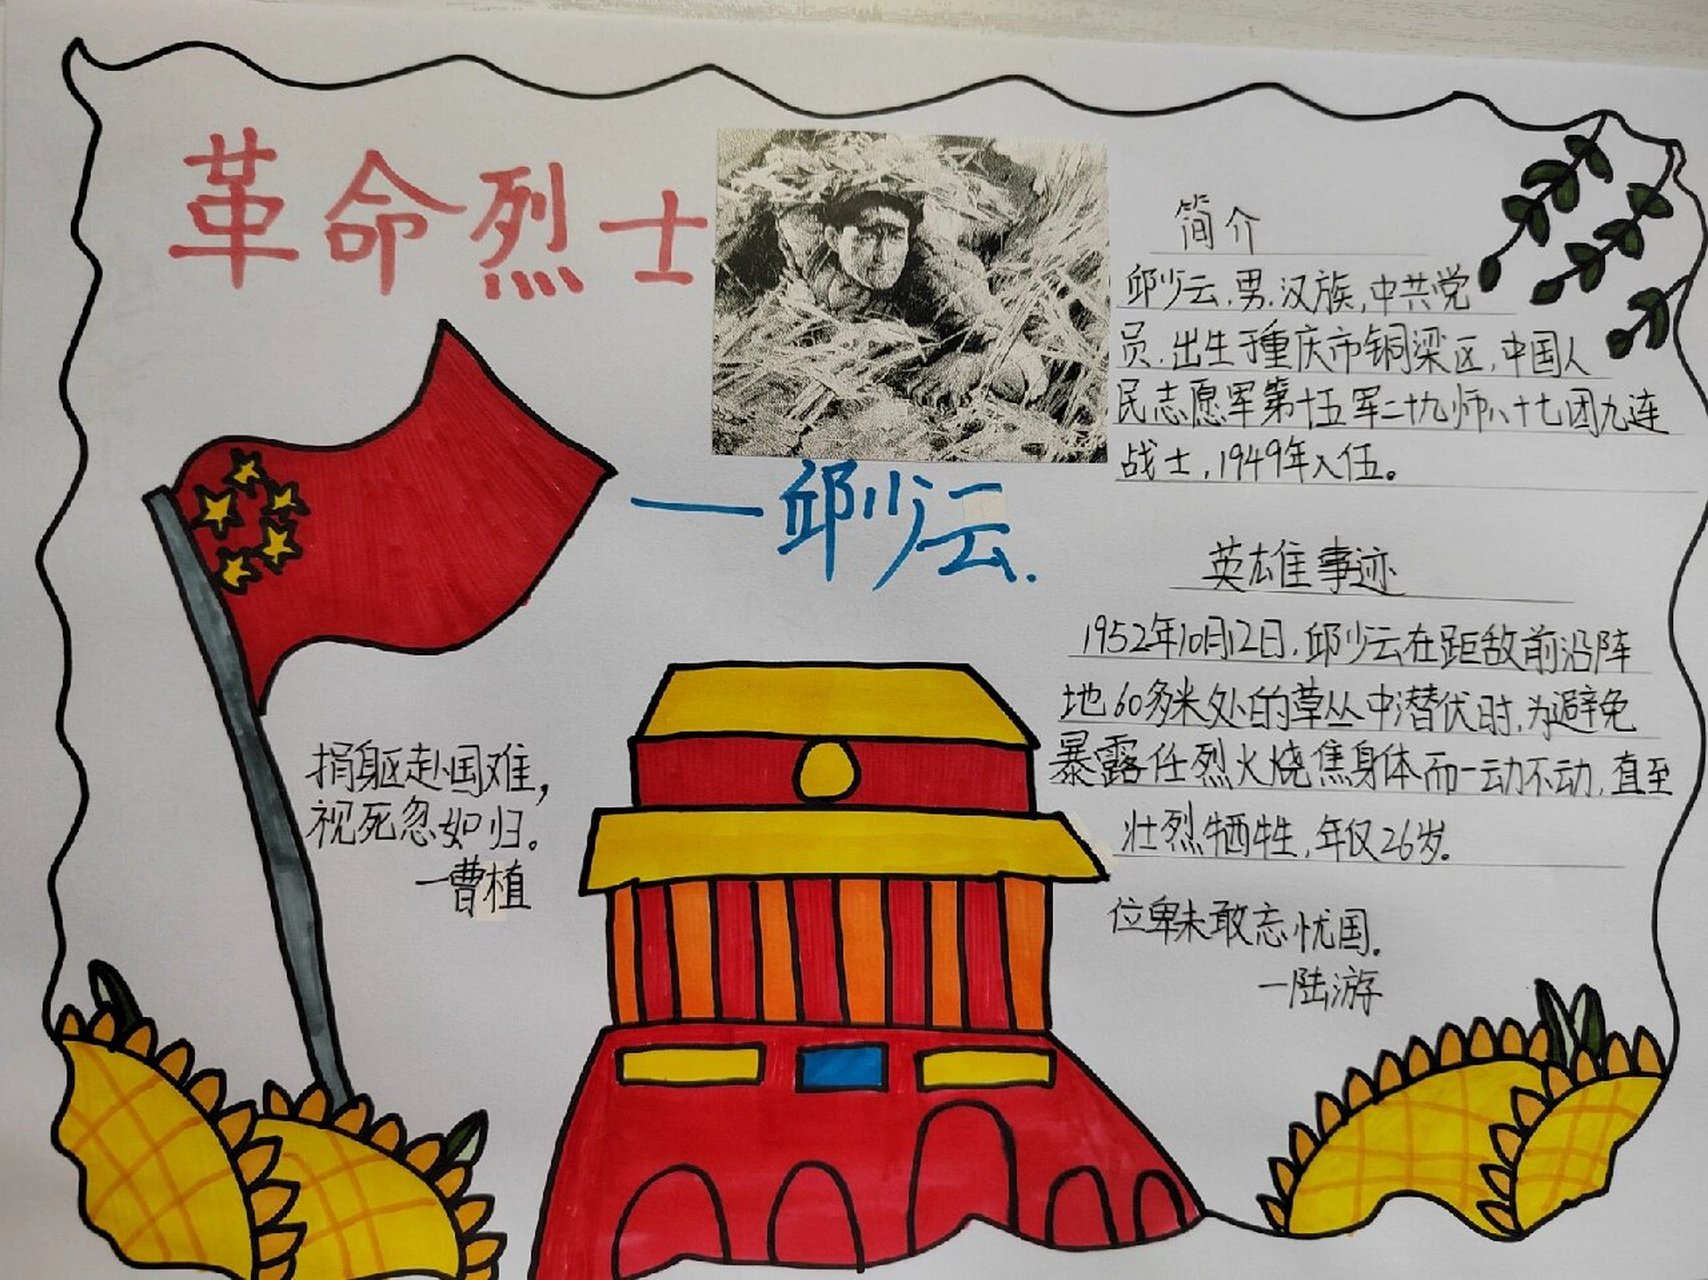 革命烈士
—邱少云.
简介
邱少云,男,汉族,中共党
员,出生于重庆市铜梁区,中国人
民志愿军第十五军二十九师八十七团九连
战士,1949年入伍。
英雄事迹
1952年10月12日,邱少云在距敌前沿阵
地60多米处的草丛中潜伏时,为避免
暴露任烈火烧焦身体而一动不动,直至
壮烈牺牲,年仅26岁。
捐躯赴国难,
视死忽如归。
—曹植
位卑未敢忘忧国.
—陆游